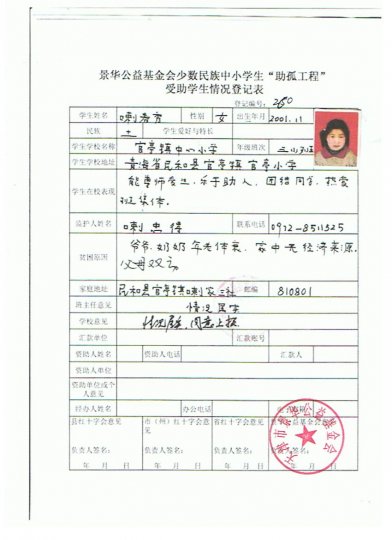 景华公益基金会少数民族中小学生“助孤工程”
受助学生情况登记表
登记编号: 260
学生姓名 喇春芳 性别 女 出生年月 2001.11
民族 土 学生爱好与特长
学生学校名称 官亭镇中心小学 年级班次
学生学校地址 青海省民和县官亭镇官亭小学
学生在校表现 能尊师爱生,乐于助人,团结同学,热爱
班集体。
监护人姓名 喇忠得 联系电话 0972-8511325
贫困原因 爷爷.奶奶年老体衰,家中无经济来源.
父母双亡
家庭地址 民和县官亭镇喇家 邮编 810801
班主任意见 情况属实
学校意见 情况属实,同意上报
汇款单位 汇款账号
资助人姓名 资助人电话 汇款人
资助人单位
资助单位或个
人意见
经办人姓名 办公电话
县红十字会意见 市(州)红十字会意见 省红十字会意见 景华公益基金会意见
负责人签名: 负责人签名: 负责人签名:
年 月 日 年 月 日 年 月 日 年 月 日
景华公益基金会